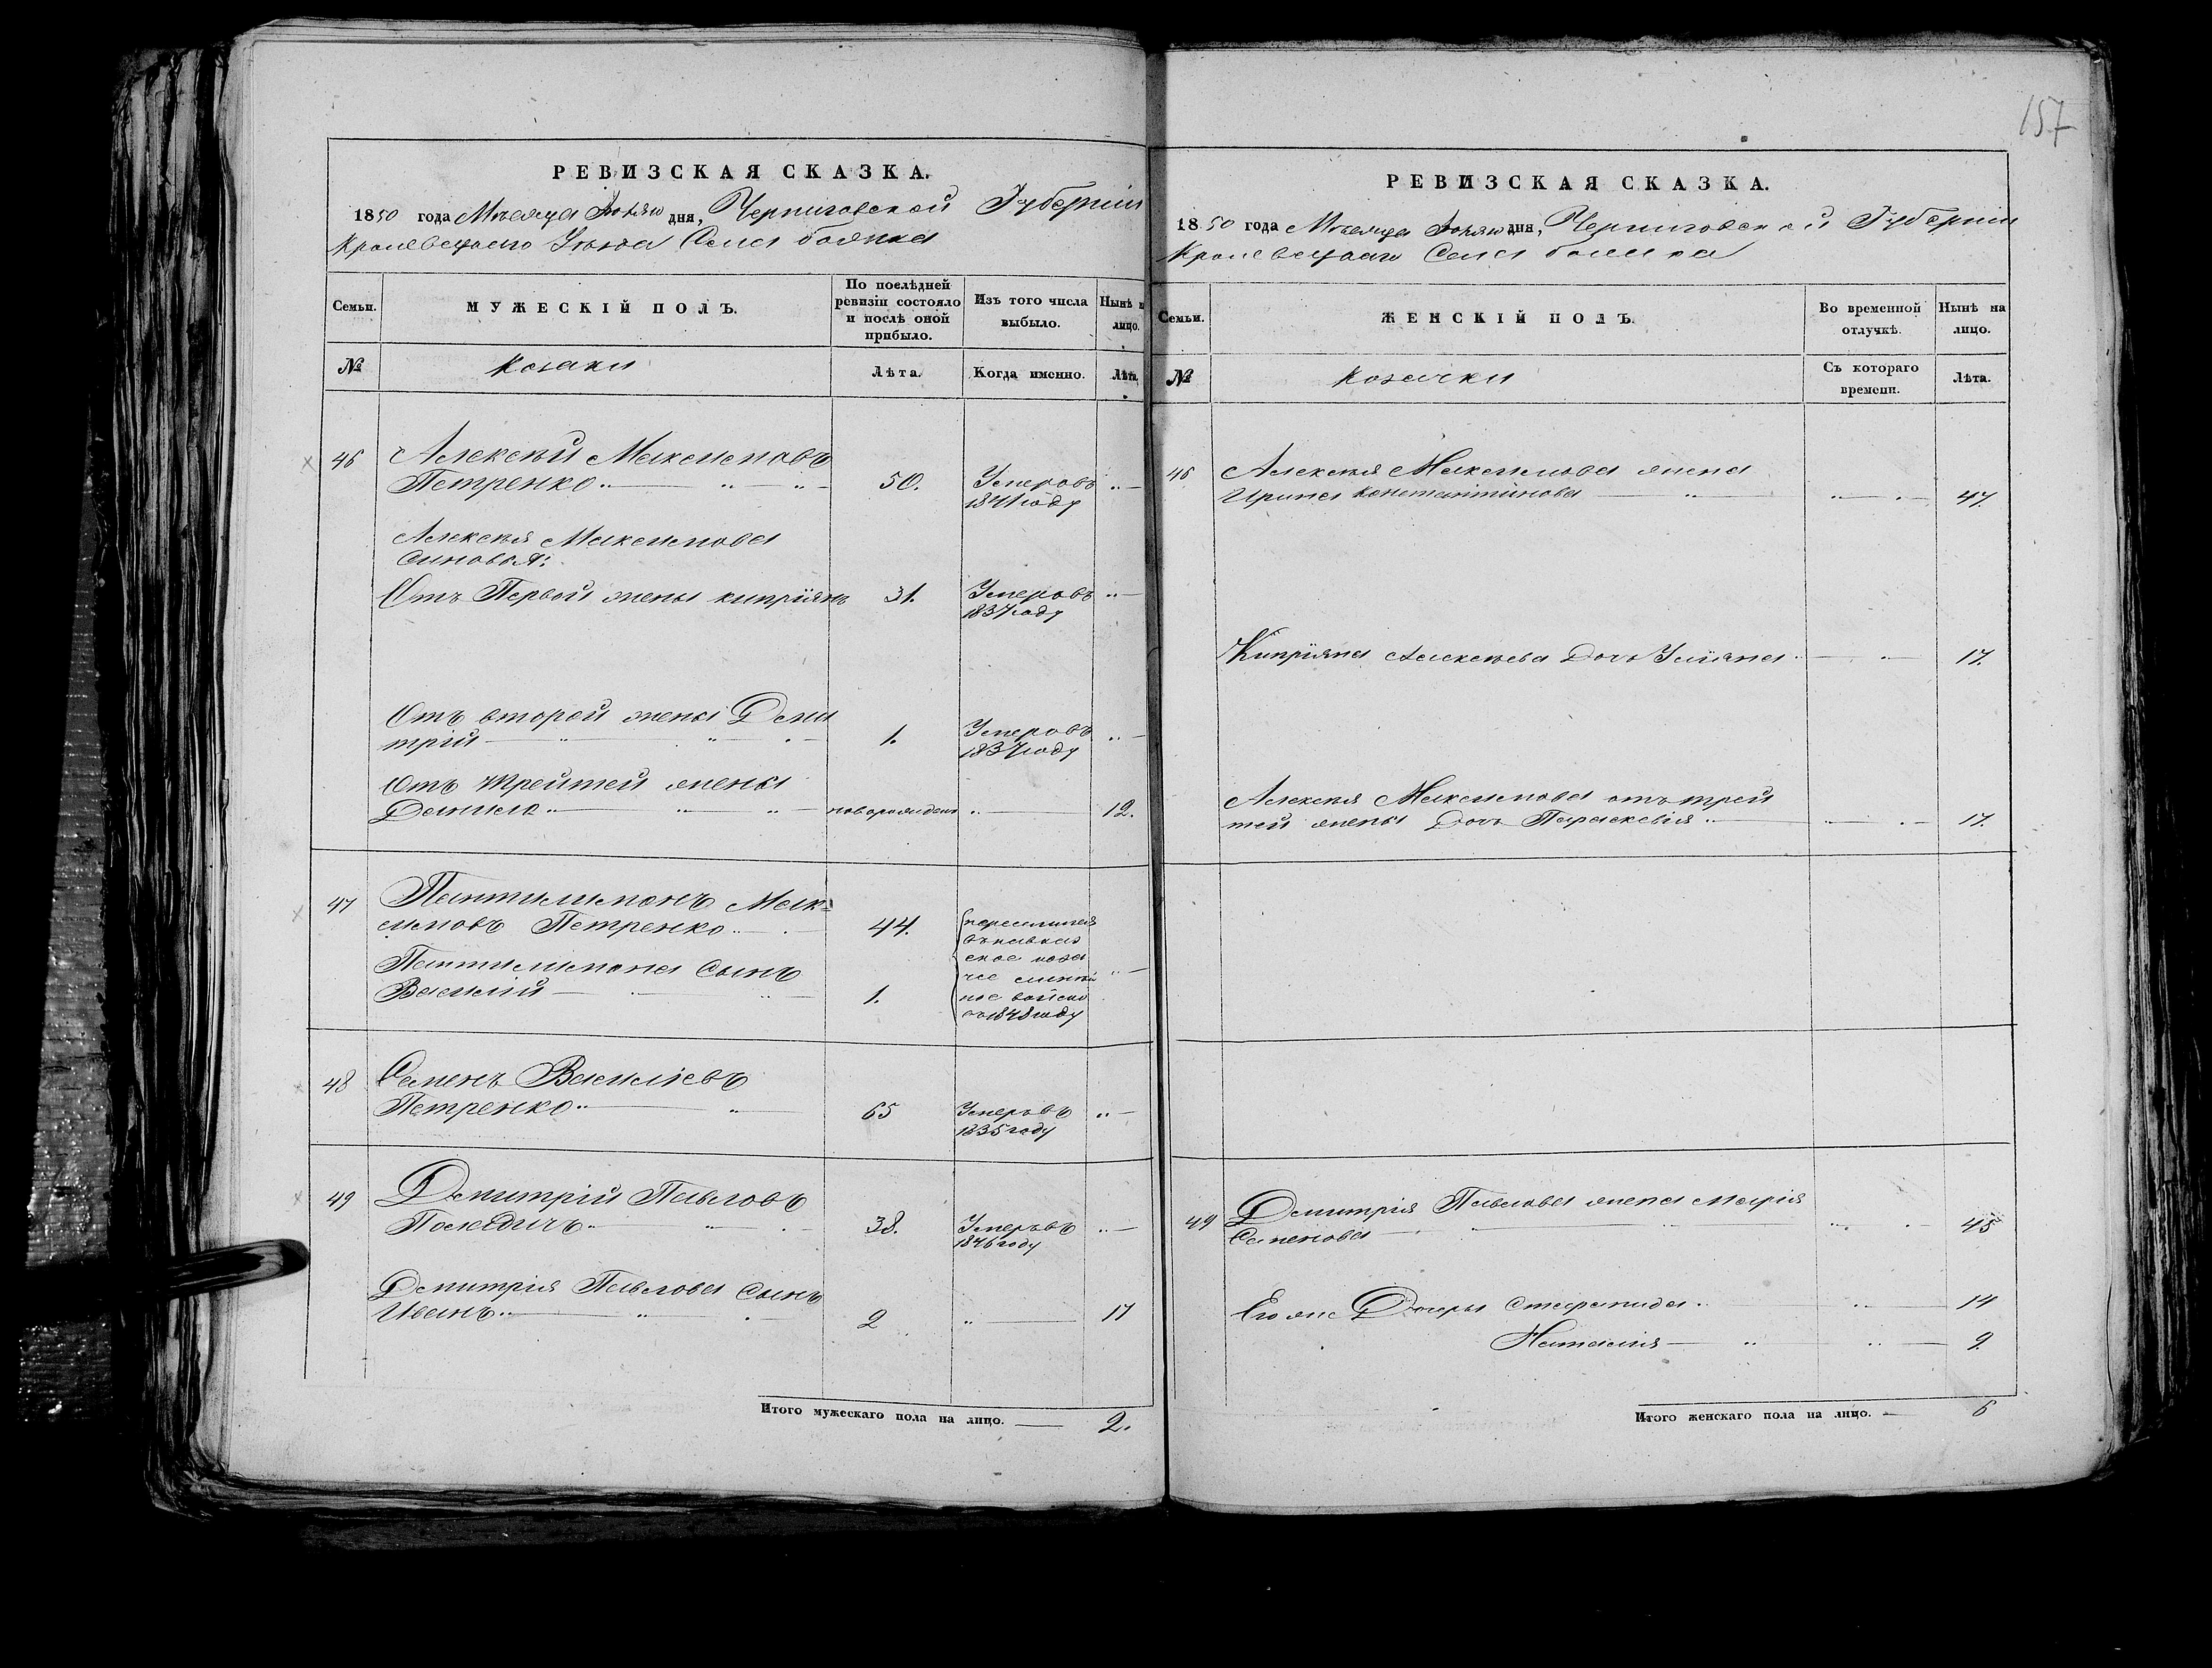 157
РЕВИЗСКАЯ СКАЗКА.
1850 года Месяца дня, Черниговской Губернии
Кролевецкаго Уезда Села
Семьи.
МУЖЕСКІЙ ПОЛЪ.
По послѣдней ревизіи состояло и послѣ оной прибыло.
Изъ того числа выбыло.
Нынѣ на лицо.
№
Козаки
Лѣта.
Когда именно.
Лѣта.
46 Алексѣй Максимовъ
Петренко 50. Умеровъ
1841 году
Алексѣя Максимова
синовья:
Отъ Первой жены киприянъ 31. Умеровъ
1837 году
Отъ второй жены Дми
трій 1. Умеровъ
1837 году
Отъ Трейтей жены
Данило новорожденъ 12.
47 Пантилимонъ Мак=
симовъ Петренко 44.
Пантилимона Сынъ
Василій 1.
переселился
въ кавказ
ское каза
чее линей
ное войско
въ 1848 году
48 Семенъ Василіевъ
Петренко 65 Умеръвъ
1835 году
49 Дмитрій Павловъ
38. Умеръвъ
1846 году
Дмитрія Павлова Сынъ
Иванъ 2 17
Итого мужескаго пола на лицо. 2.
РЕВИЗСКАЯ СКАЗКА.
1850 года Месяца дня, Черниговской Губернии
Кролевецкаго Села
Семьи.
ЖЕНСКІЙ ПОЛЪ.
Во временной отлучкѣ.
Нынѣ на лицо.
№
Козачки
Съ котораго времени.
Лѣта.
46 Алексѣя Максимова жена
Ирина Константинова 47.
Киприяна Алексѣева Дочь Улияна 17.
Алексѣя Максимова отъ трей
тей жены Дочь Параскевія 17.
49 Дмитрія Павлова жена Марія
Семенова 45
Его же Дочеры Степанида 14
Наталия 9.
Итого женскаго пола на лицо. 6